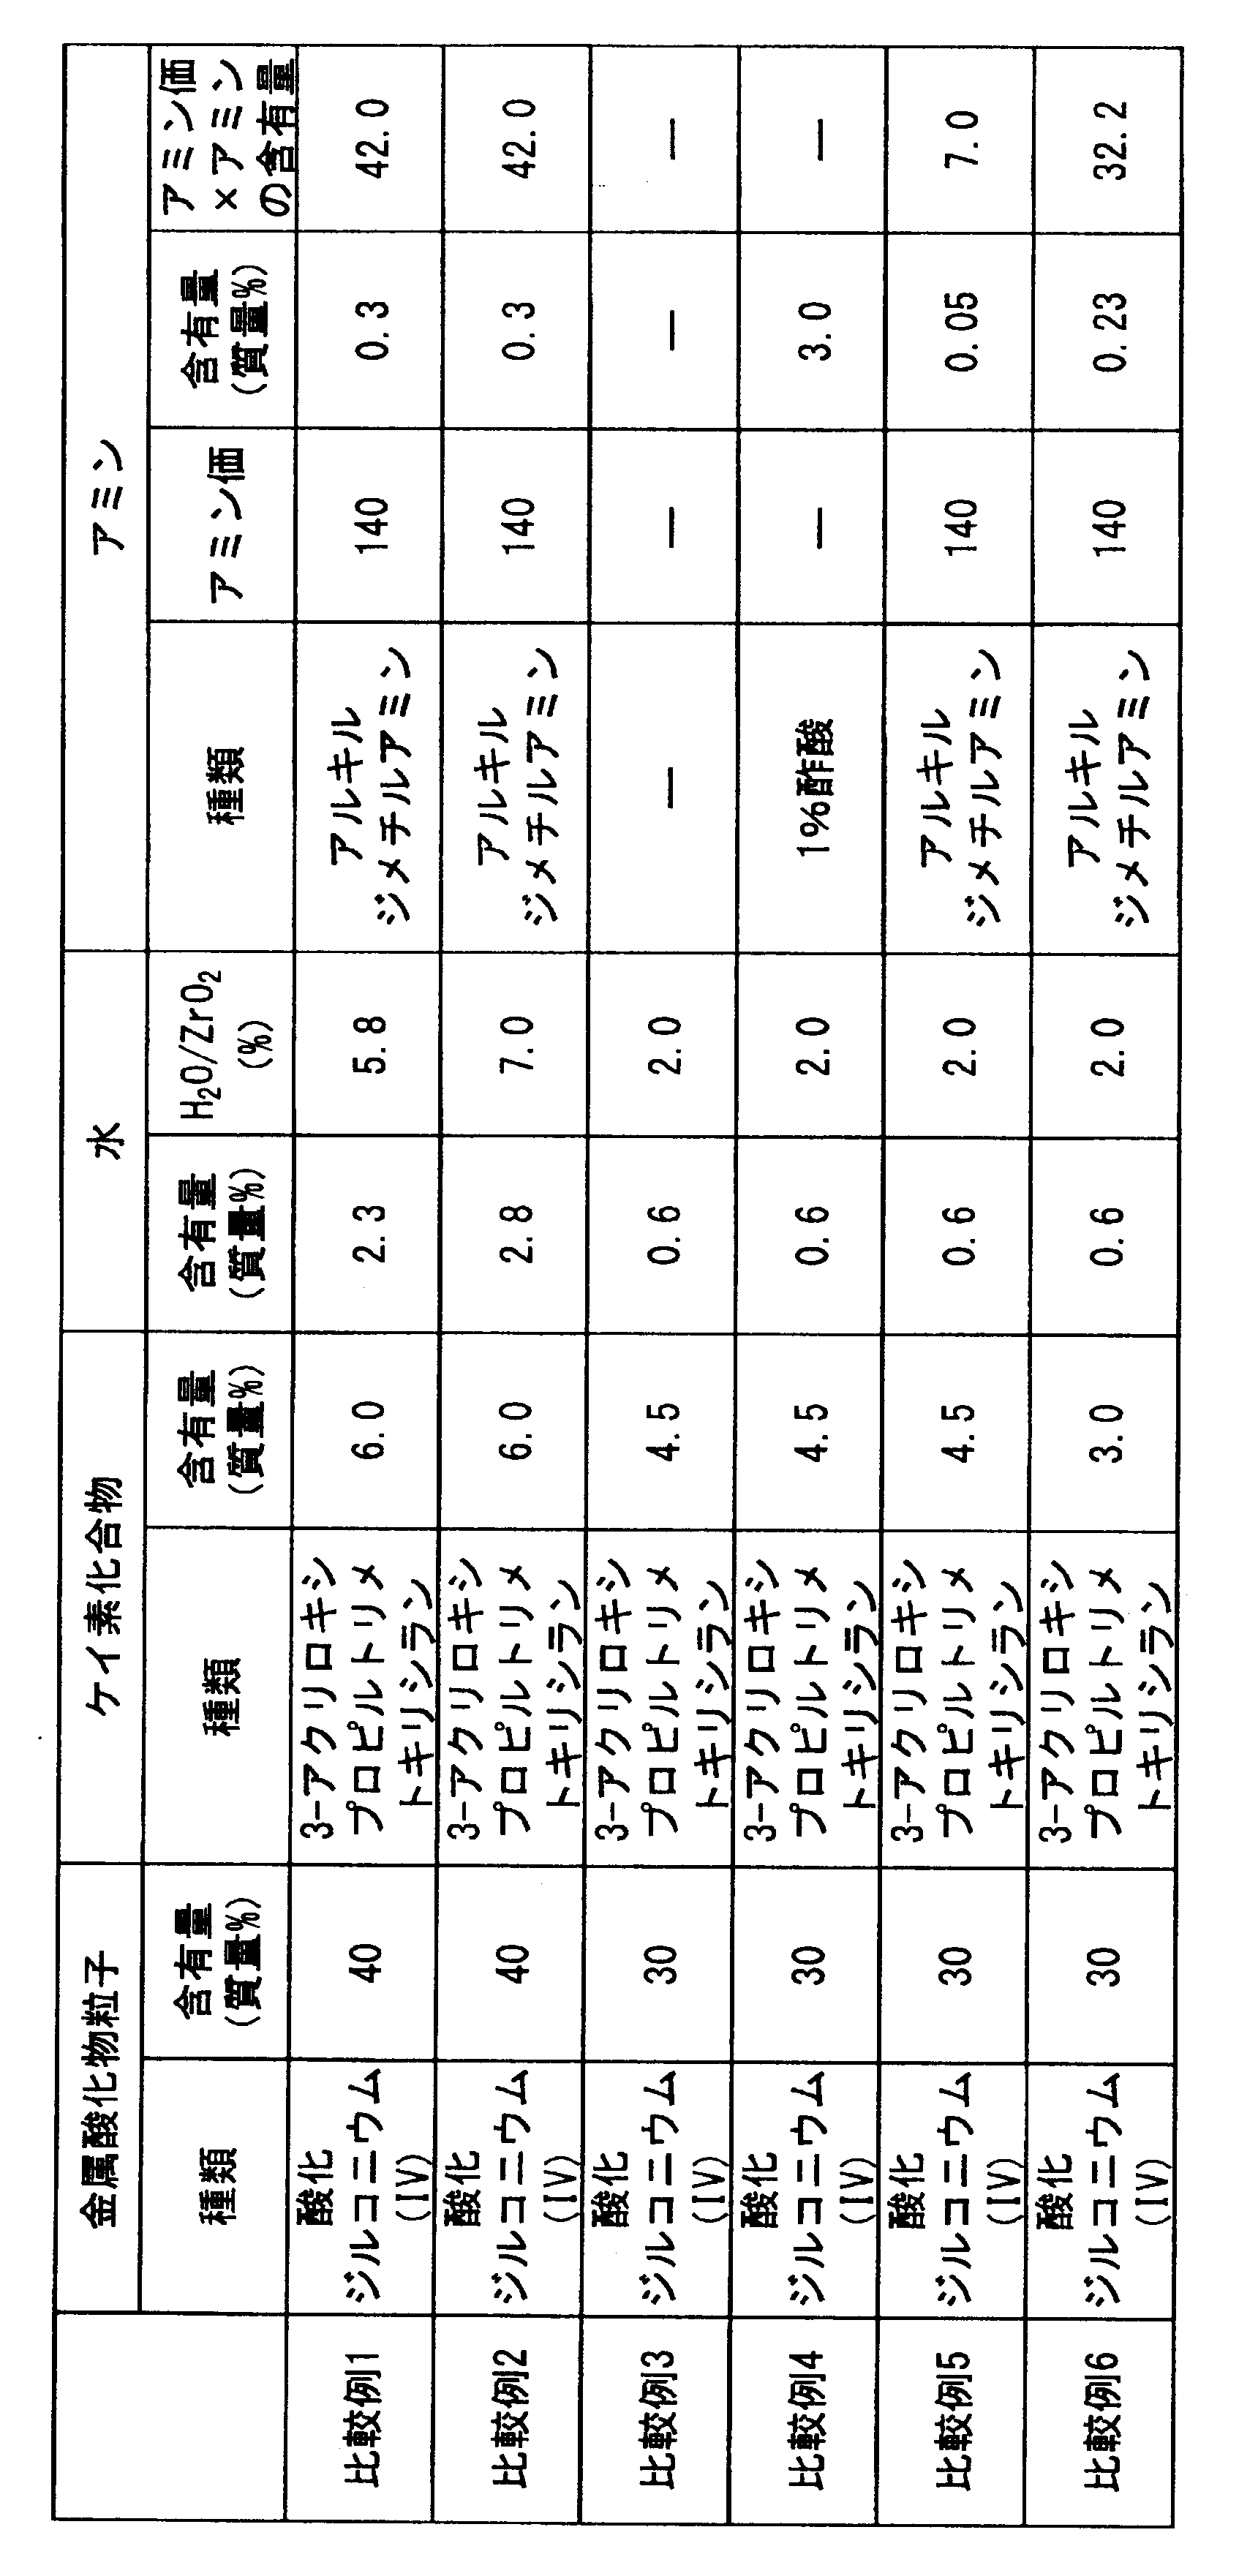 金属酸化物粒子
ケイ素化合物
水
アミン
種類
含有量
(質量%)
種類
含有量
(質量%)
含有量
(質量%)
H₂O/ZrO₂
(%)
種類
アミン価
含有量
(質量%)
アミン価
×アミン
の含有量
比較例1
酸化
ジルコニウム
(IV)
40
3-アクリロキシ
プロピルトリメ
トキリシラン
6.0
2.3
5.8
アルキル
ジメチルアミン
140
0.3
42.0
比較例2
酸化
ジルコニウム
(IV)
40
3-アクリロキシ
プロピルトリメ
トキリシラン
6.0
2.8
7.0
アルキル
ジメチルアミン
140
0.3
42.0
比較例3
酸化
ジルコニウム
(IV)
30
3-アクリロキシ
プロピルトリメ
トキリシラン
4.5
0.6
2.0
—
—
—
—
比較例4
酸化
ジルコニウム
(IV)
30
3-アクリロキシ
プロピルトリメ
トキリシラン
4.5
0.6
2.0
1%酢酸
—
3.0
—
比較例5
酸化
ジルコニウム
(IV)
30
3-アクリロキシ
プロピルトリメ
トキリシラン
4.5
0.6
2.0
アルキル
ジメチルアミン
140
0.05
7.0
比較例6
酸化
ジルコニウム
(IV)
30
3-アクリロキシ
プロピルトリメ
トキリシラン
3.0
0.6
2.0
アルキル
ジメチルアミン
140
0.23
32.2